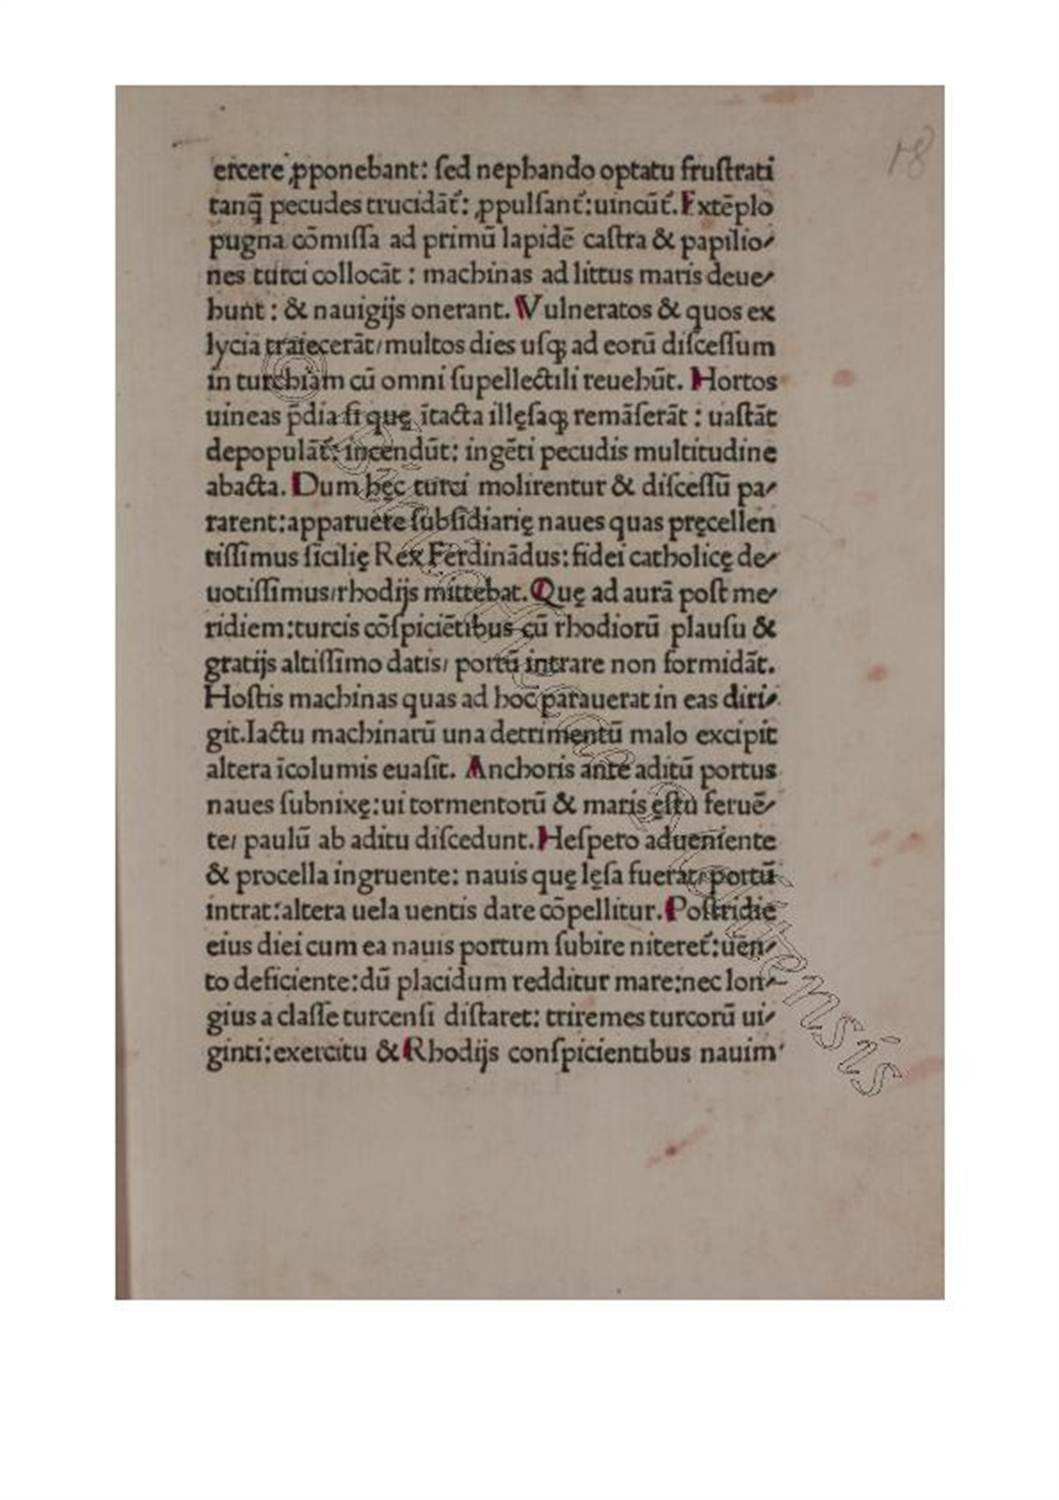 18
ercere ꝓponebant: ſed nephando optatu fruſtrati
tanq̄ pecudes trucidāt᷑: ꝓpulſant᷑: uincūt᷑. Extēplo
pugna cōmiſſa ad primū lapidē caſtra & papilio⸗
nes turci collocāt : machinas ad littus maris deue⸗
hunt : & nauigijs onerant. Vulneratos & quos ex
lycia traiecerāt/ multos dies uſꝙ ad eorū diſceſſum
in turchiam cū omni ſupellectili reuehūt. Hortos
uineas p̄dia ſi quę ītacta illęſaꝙ remāſerāt : uaſtāt
depopulāt᷑: incendūt: ingēti pecudis multitudine
abacta. Dum hęc turci molirentur & diſceſſū pa⸗
rarent: apparuere ſubſidiarię naues quas pręcellen
tiſſimus ſicilię Rex Ferdinādus: fidei catholicę de⸗
uotiſſimus/ rhodijs mittebat. Quę ad aurā poſt me⸗
ridiem: turcis cōſpiciētibus cū rhodiorū plauſu &
gratijs altiſſimo datis/ portū intrare non formidāt.
Hoſtis machinas quas ad hoc parauerat in eas diri⸗
git. Iactu machinarū una detrimentū malo excipit
altera īcolumis euaſit. Anchoris ante aditū portus
naues ſubnixę: ui tormentorū & maris ęſtu feruē⸗
te/ paulū ab aditu diſcedunt. Heſpero adueniente
& procella ingruente: nauis quę lęſa fuerat/ portū
intrat: altera uela uentis dare cōpellitur. Poſtridie
eius diei cum ea nauis portum ſubire niteret᷑: uēn⸗
to deficiente: dū placidum redditur mare: nec lon⸗
gius a claſſe turcenſi diſtaret: triremes turcorū ui⸗
ginti: exercitu & Rhodijs conſpicientibus nauim